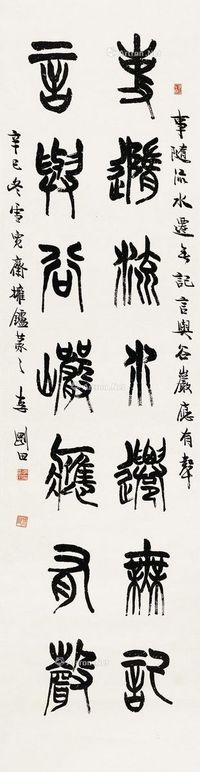 事隨流水遷無記言與谷巖應有聲
事隨流水遷無記
言與谷巖應有聲
辛巳冬雪寬齋擁鑪篆之李剛田